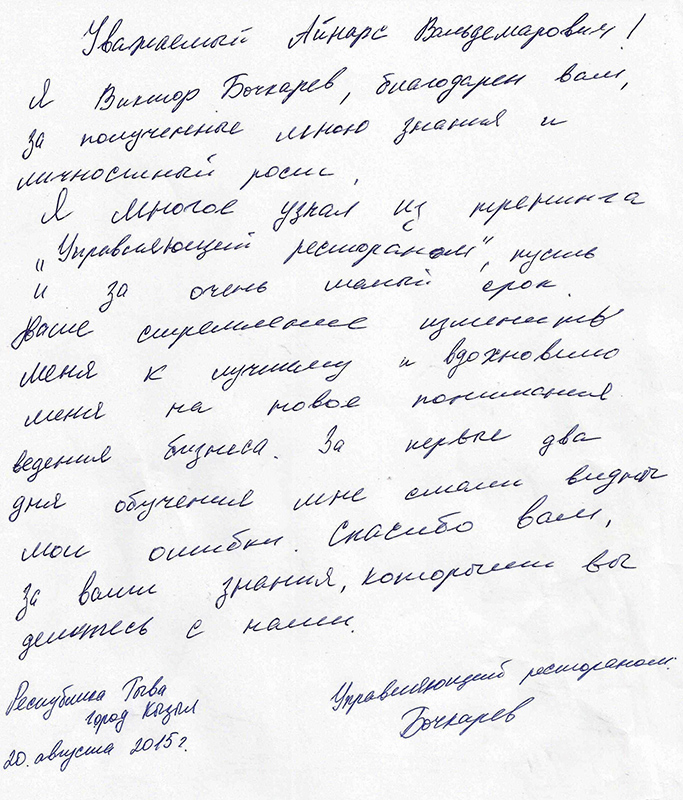 Уважаемый Айнарс Вальдемарович!
Я Виктор Бочкарев, благодарен вам,
за полученные мною знания и
личностный рост.
Я многое узнал из тренинга
„Управляющий рестораном", пусть
и за очень малый срок.
Ваше стремление изменить
меня к лучшему и вдохновило
меня на новое понимания
ведения бизнеса. За первые два
дня обучения мне стали видны
мои ошибки. Спасибо вам,
за ваши знания, которыми вы
делитесь с нами.
Республика Тыва
город Кызыл
20. августа 2015г.
Управляющий рестораном:
Бочкарев